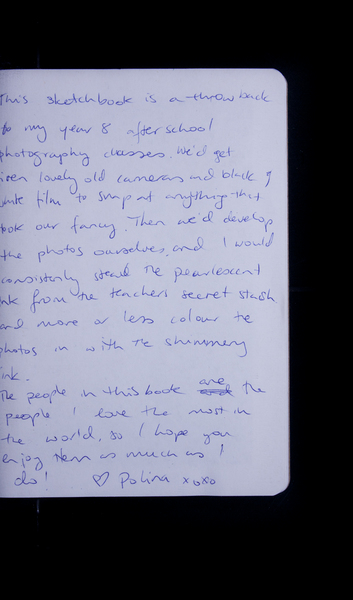 This sketchbook is a throw back
to my year 8 after school
photography classes. We'd get
given lovely old cameras and black &
white film to snap at anything that
took our fancy. Then we'd develop
the photos ourselves, and I would
consistently steal the pearlescent
ink from the teachers secret stash
and more or less colour the
photos in with the shimmery
ink.
The people in this book are the
people I love the most in
the world, so I hope you
enjoy them as much as I
do! ♡ Polina xoxo